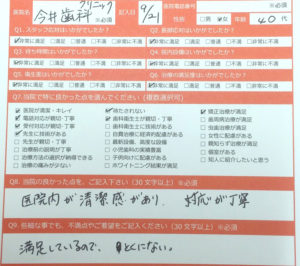 医院名 今井歯科クリニック ※必須 記入日 9/21 医院電話番号
※必須 性別 □男 ☑女 年齢 40代
Q1. スタッフ応対はいかがでしたか？ Q2. 医師応対はいかがでしたか？
☑非常に満足 □満足 □普通 □不満 □非常に不満 ☑非常に満足 □満足 □普通 □不満 □非常に不満
Q3. 待ち時間はいかがでしたか？ Q4. 院内設備はいかがでしたか？
☑非常に満足 □満足 □普通 □不満 □非常に不満 ☑非常に満足 □満足 □普通 □不満 □非常に不満
Q5. 衛生面はいかがでしたか？ Q6. 治療の満足度はいかがでしたか？
☑非常に満足 □満足 □普通 □不満 □非常に不満 ☑非常に満足 □満足 □普通 □不満 □非常に不満
Q7. 当院で特に良かった点を選んでください（複数選択可）
☑医院が清潔・キレイ ☑待たされない ☑矯正治療が満足
☑電話対応が親切・丁寧 ☑歯科衛生士が親切・丁寧 □歯周病治療が満足
☑受付対応が親切・丁寧 □歯科衛生士に技術がある □虫歯治療が満足
☑先生に技術がある □自費治療に経済的配慮がある □女性に配慮がある
□先生が親切・丁寧 □最新設備、高度な設備 □親知らず治療が満足
□治療前の説明が丁寧 □小児歯科の実績豊富 □個室がある
□治療方法の選択が納得できる □子供向けに配慮がある □知人に紹介したいと思う
□治療の痛みが少ない □ホワイトニング結果が満足
Q8. 当院の良かった点を、ご記入下さい（30文字以上）※必須
医院内が清潔感があり、対応が丁寧
Q9. 些細な事でも、不満点やご要望をご記入ください（30文字以上）※必須
満足しているので、とくにない。